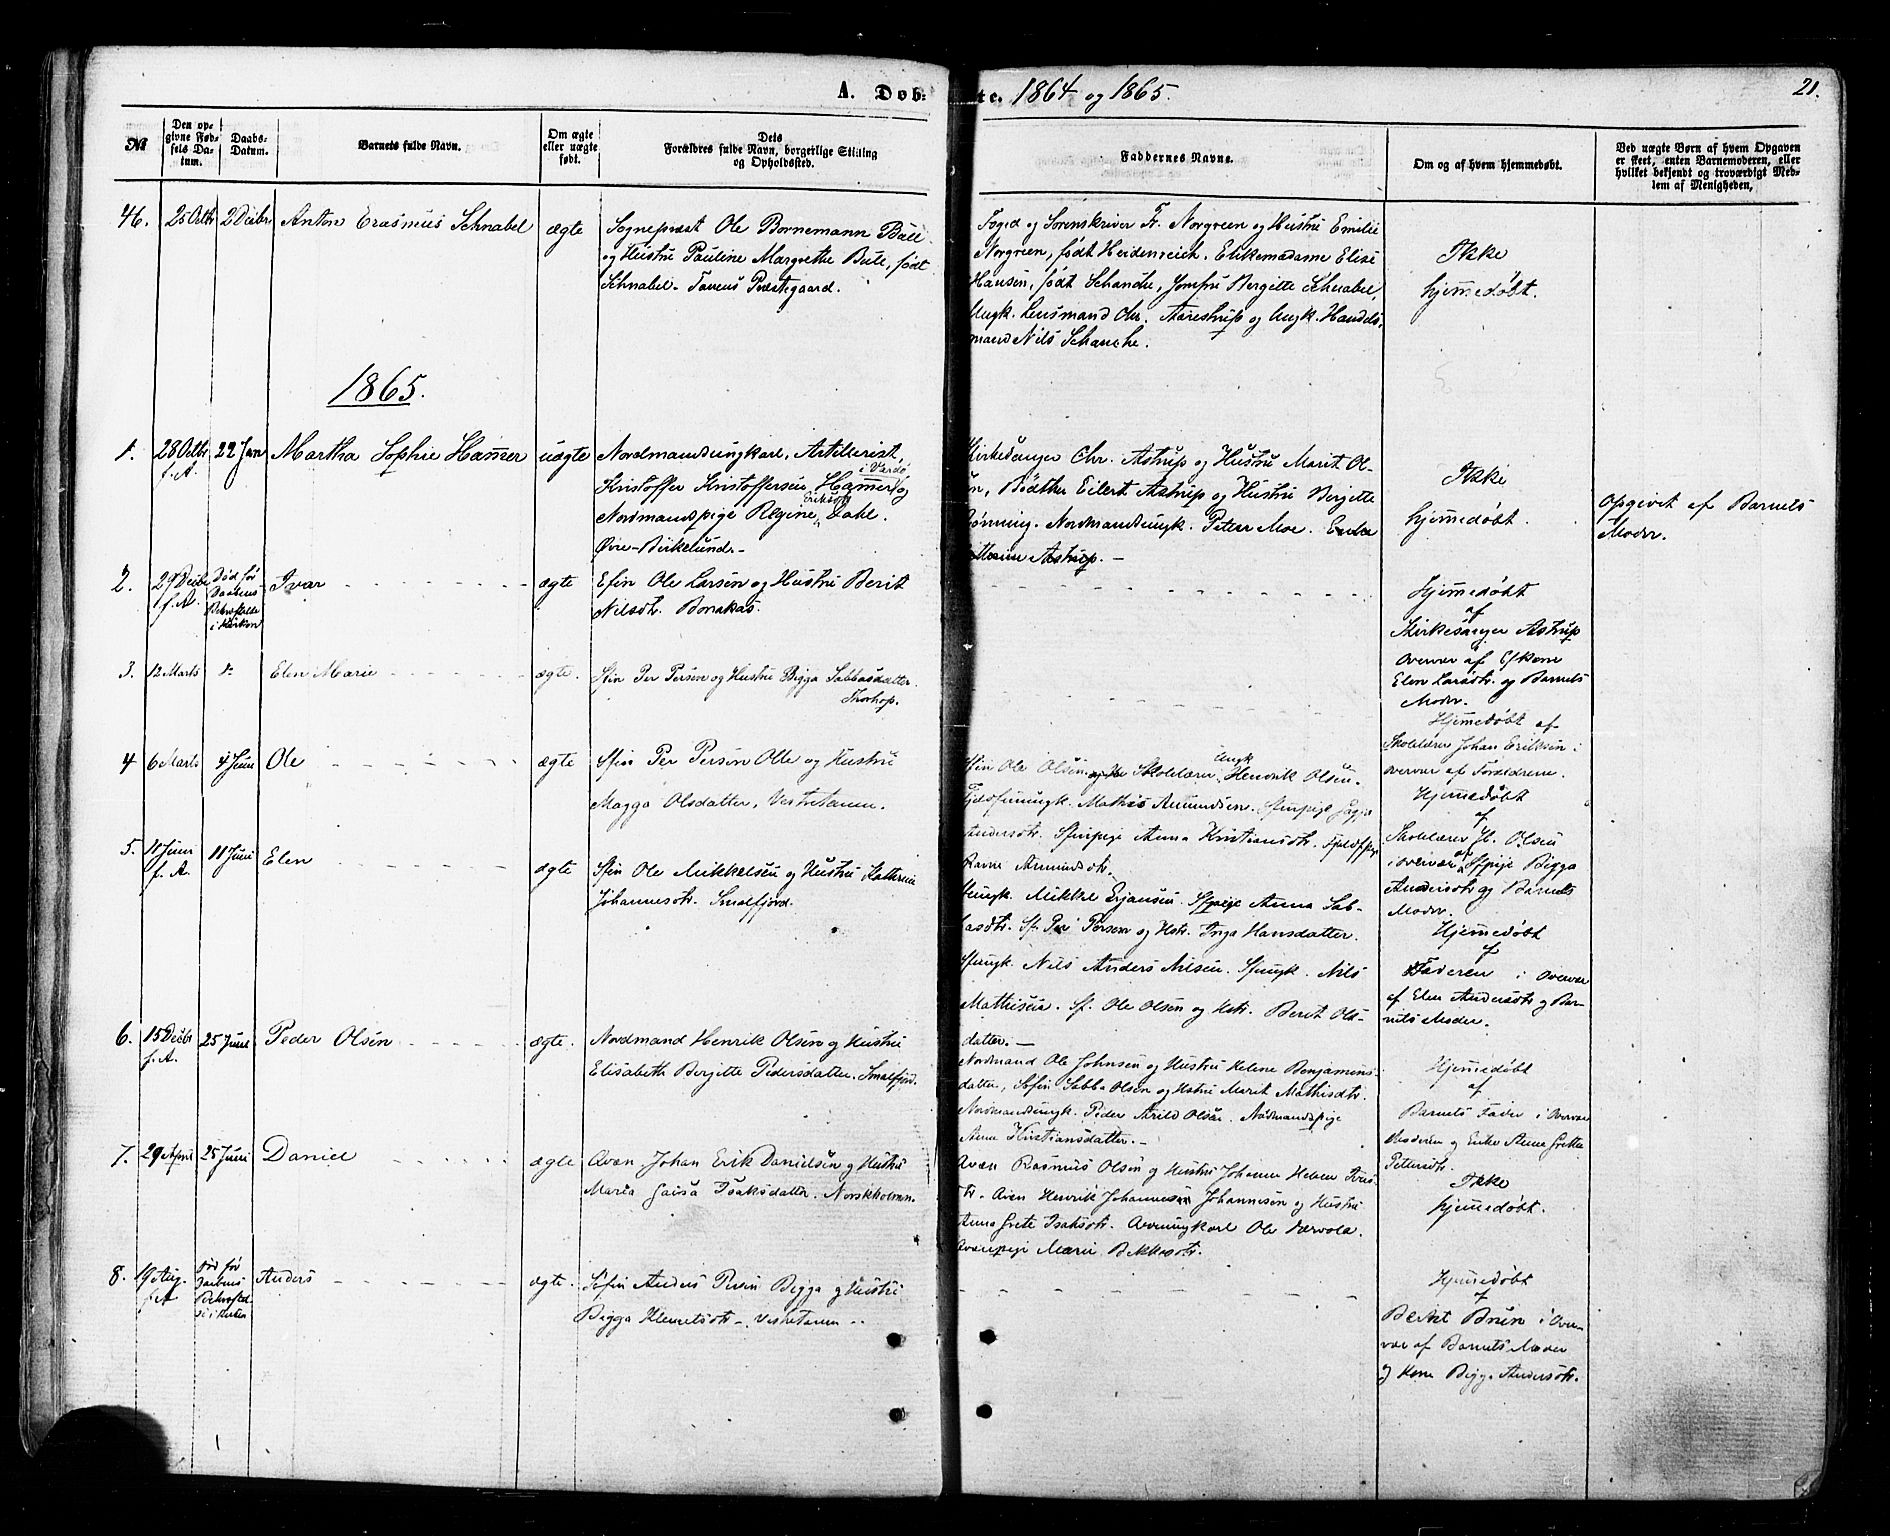 A. Døb-te. 1864 og 1865. 21.
№
Den op-
givne Fød-
sels Da-
tum.
Daabs-
Datum.
Barnets fulde Navn.
Om ægte
eller uægte
født.
Dets
Forældres fulde Navn, borgerlige Stilling
og Opholdssted.
Faddernes Navne.
Om og af hvem hjemmedøbt.
Ved uægte Børn af hvem Opgaven
er skeet, enten Barnemoderen, eller
hvilket bekjendt og troværdigt Med-
lem af Menigheden.
46. 25 Octbr 2 Decbr Anton Erasmus Schnabel ægte
Sognepræst Ole Bornemann Bull
og Hustru Pauline Margrethe Bull, født
Schnabel - Tanens Præstegaard.
Foged og Sorenskriver Fr. Norgreen og Hustru Emilie
Norgreen, født Heidenreich. Enkemadame Elise
Hansen, født Schanche, Jomfru Bergitte Schnabel,
Ungk. Lensmand Chr. Aarestrup og Ungk. Handels-
mand Nils Schanche.
Ikke
hjemmedøbt.
1865.
1. 28 Octbr 22 Jan Martha Sophie Hammer uægte
f. A.
Nordmandsungkarl, Artillerist,
i Vardø
Kristoffer Kristoffersen Hammer og
Eriksdtr
Nordmandspige Regine Dahl.
Øvre-Birkelund.-
Kirkesanger Chr. Astrup og Hustru Marit Ol-
sen, Bødtker Eilert Astrup og Hustru Bergitte
Rønning. Nordmandsungk. Peter Moe. Enke
Astrup. -
Ikke
hjemmedøbt.
Opgivet af Barnets
Moder.
2. 29 Decbr f. A.
Død før
Daabens
Bekræftelse
i Kirken
Ivar ægte
Efin Ole Larsen og Hustru Berit
Nilsdtr. Bonakas.
Hjemmedøbt
af
Kirkesanger Astrup
overvær af Efkone
Elen Larsdtr. og Barnets
Moder.
3. 12 Marts Elen Marie ægte.
Sfin Per Persen og Hustru Bigga Sabbasdatter.
Thorhop.
Hjemmedøbt af
Skolelærer Johan Eriksen i
overvær af Forældrene.
4 6 Marts 4 Juni Ole ægte
Sfin Per Persen Olle og Hustru
Magga Olsdatter, Vestretanen.
Ungk
Sfin Ole Olsen Skolelærer Henrik Olsen
Fjeldfinungk. Mathis Amundsen. Sfinpige
Andersdtr. Sfinpige Anna Kristiansdtr. Fjeldfpige
Ravne Amundsdtr.
Hjemmedøbt
af
Skolelærer H. Olsen
i overvær af Sfpige Bigga
Andersdtr og Barnets
Moder.
5. 11 Juni f. A. 11 Juni Elen ægte
Sfin Ole Mikkelsen og Hustru Kathrine
Johannesdtr. Smalfjord.
Mikkel Erjansen. Sfpige Anna Sab-
basdtr. Sf. Per Persen og Hstr. Inga Hansdatter.
Sfungk. Nils Anders Nilsen. Sfungk. Nils
Mathisen. Sf. Ole Olsen og Hstr. Berit Ols-
datter. -
Hjemmedøbt
af
Faderen i Overvær
af Elen Andersdtr og Bar-
nets Moder.
6. 15 Decbr f. A. 25 Juni Peder Olsen ægte.
Nordmand Henrik Olsen og Hustru
Elisabeth Bergitte Pedersdatter. Smalfjord.
Nordmand Ole Johnsen og Hustru Helene Benjamins-
datter, Søfin Sabba Olsen og Hstru Marit Mathisdtr.
Nordmandsungk. Peder Arild Olsen. Nordmandspige
Anne Kristiansdatter. -
Hjemmedøbt
af
Barnets Fader i Overvær
Moderen og Enke Anne Grethe
Pettersdtr.
7. 29 April 25 Juni Daniel ægte
Qvæn Johan Erik Danielsen og Hustru
Maria Isaksdatter. Norskholmen.
Qvæn Rasmus Olsen og Hustru Johanne Helene
Qvæn Henrik Johannesen og Hustru
Anna Grete Isaksdtr. Qvenungkarl Ole
Qvænpige Marie
Ikke
hjemmedøbt.
8. 19 Aug. f. A
Død før
Daabens
Anders ægte.
Søfin Anders Persen Bigga og Hustru
Bigga Klemetsdtr -. Vestretanen -.
Hjemmedøbt
af
Berit Bruun i Over-
vær af Barnets Moder
og Kone Bigga Andersdtr.